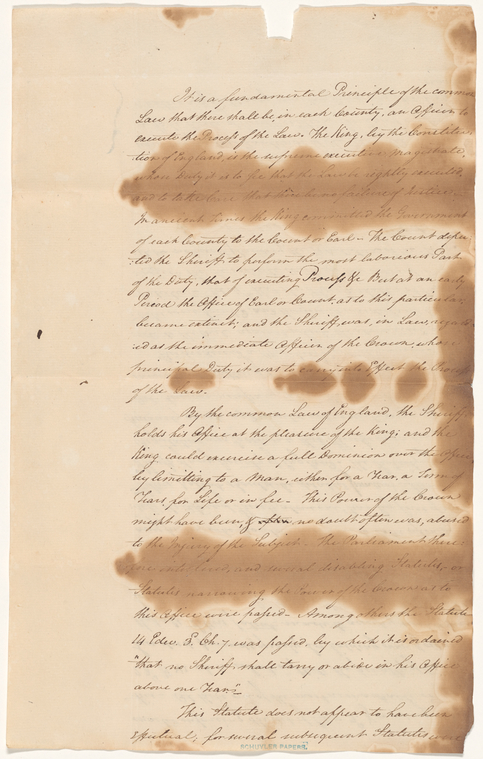 It is a fundamental Principle of the common
Law that there shall be, in each County, an Officer to
execute the Process of the Law. The King, by the Constitu-
tion of England, is the supreme executive magistrate,
whose Duty it is to see that the Law is rightly executed,
and to take Care that there be no failure of Justice.
In ancient times the King committed the Government
of each County to the Count or Earl – The Count depu-
ted the Sheriff to perform the most laborious Part
of the Duty, that of executing Process &c But at an early
Period the Office of Earl or Count, as to this particular
became extinct; and the Sheriff was, in Law,
ed as the immediate Officer of the Crown, whose
principal Duty it was to Effect the
of the Law.
By the common Law of England, the Sheriff
holds his Office at the pleasure of the King; and the
King could exercise a full Dominion over the Office
by limitting to a Man, either for a Year, a Term of
Years, for Life or in fee – This Power of the Crown
might have been, & often, no doubt often was, abused
to the Injury of the Subject – The Parliament there-
fore and several disabling Statutes, or
Statutes narrowing the Power of the Crown as to
this Office were passed – Among others the Statute
14 Edw. 3. Ch. 7. was passed, by which it is ordained
"that no Sheriff shall tarry or abide in his Office
above one Year"
This Statute does not appear to have been
effectual; for several subsequent Statutes were
SCHUYLER PAPERS